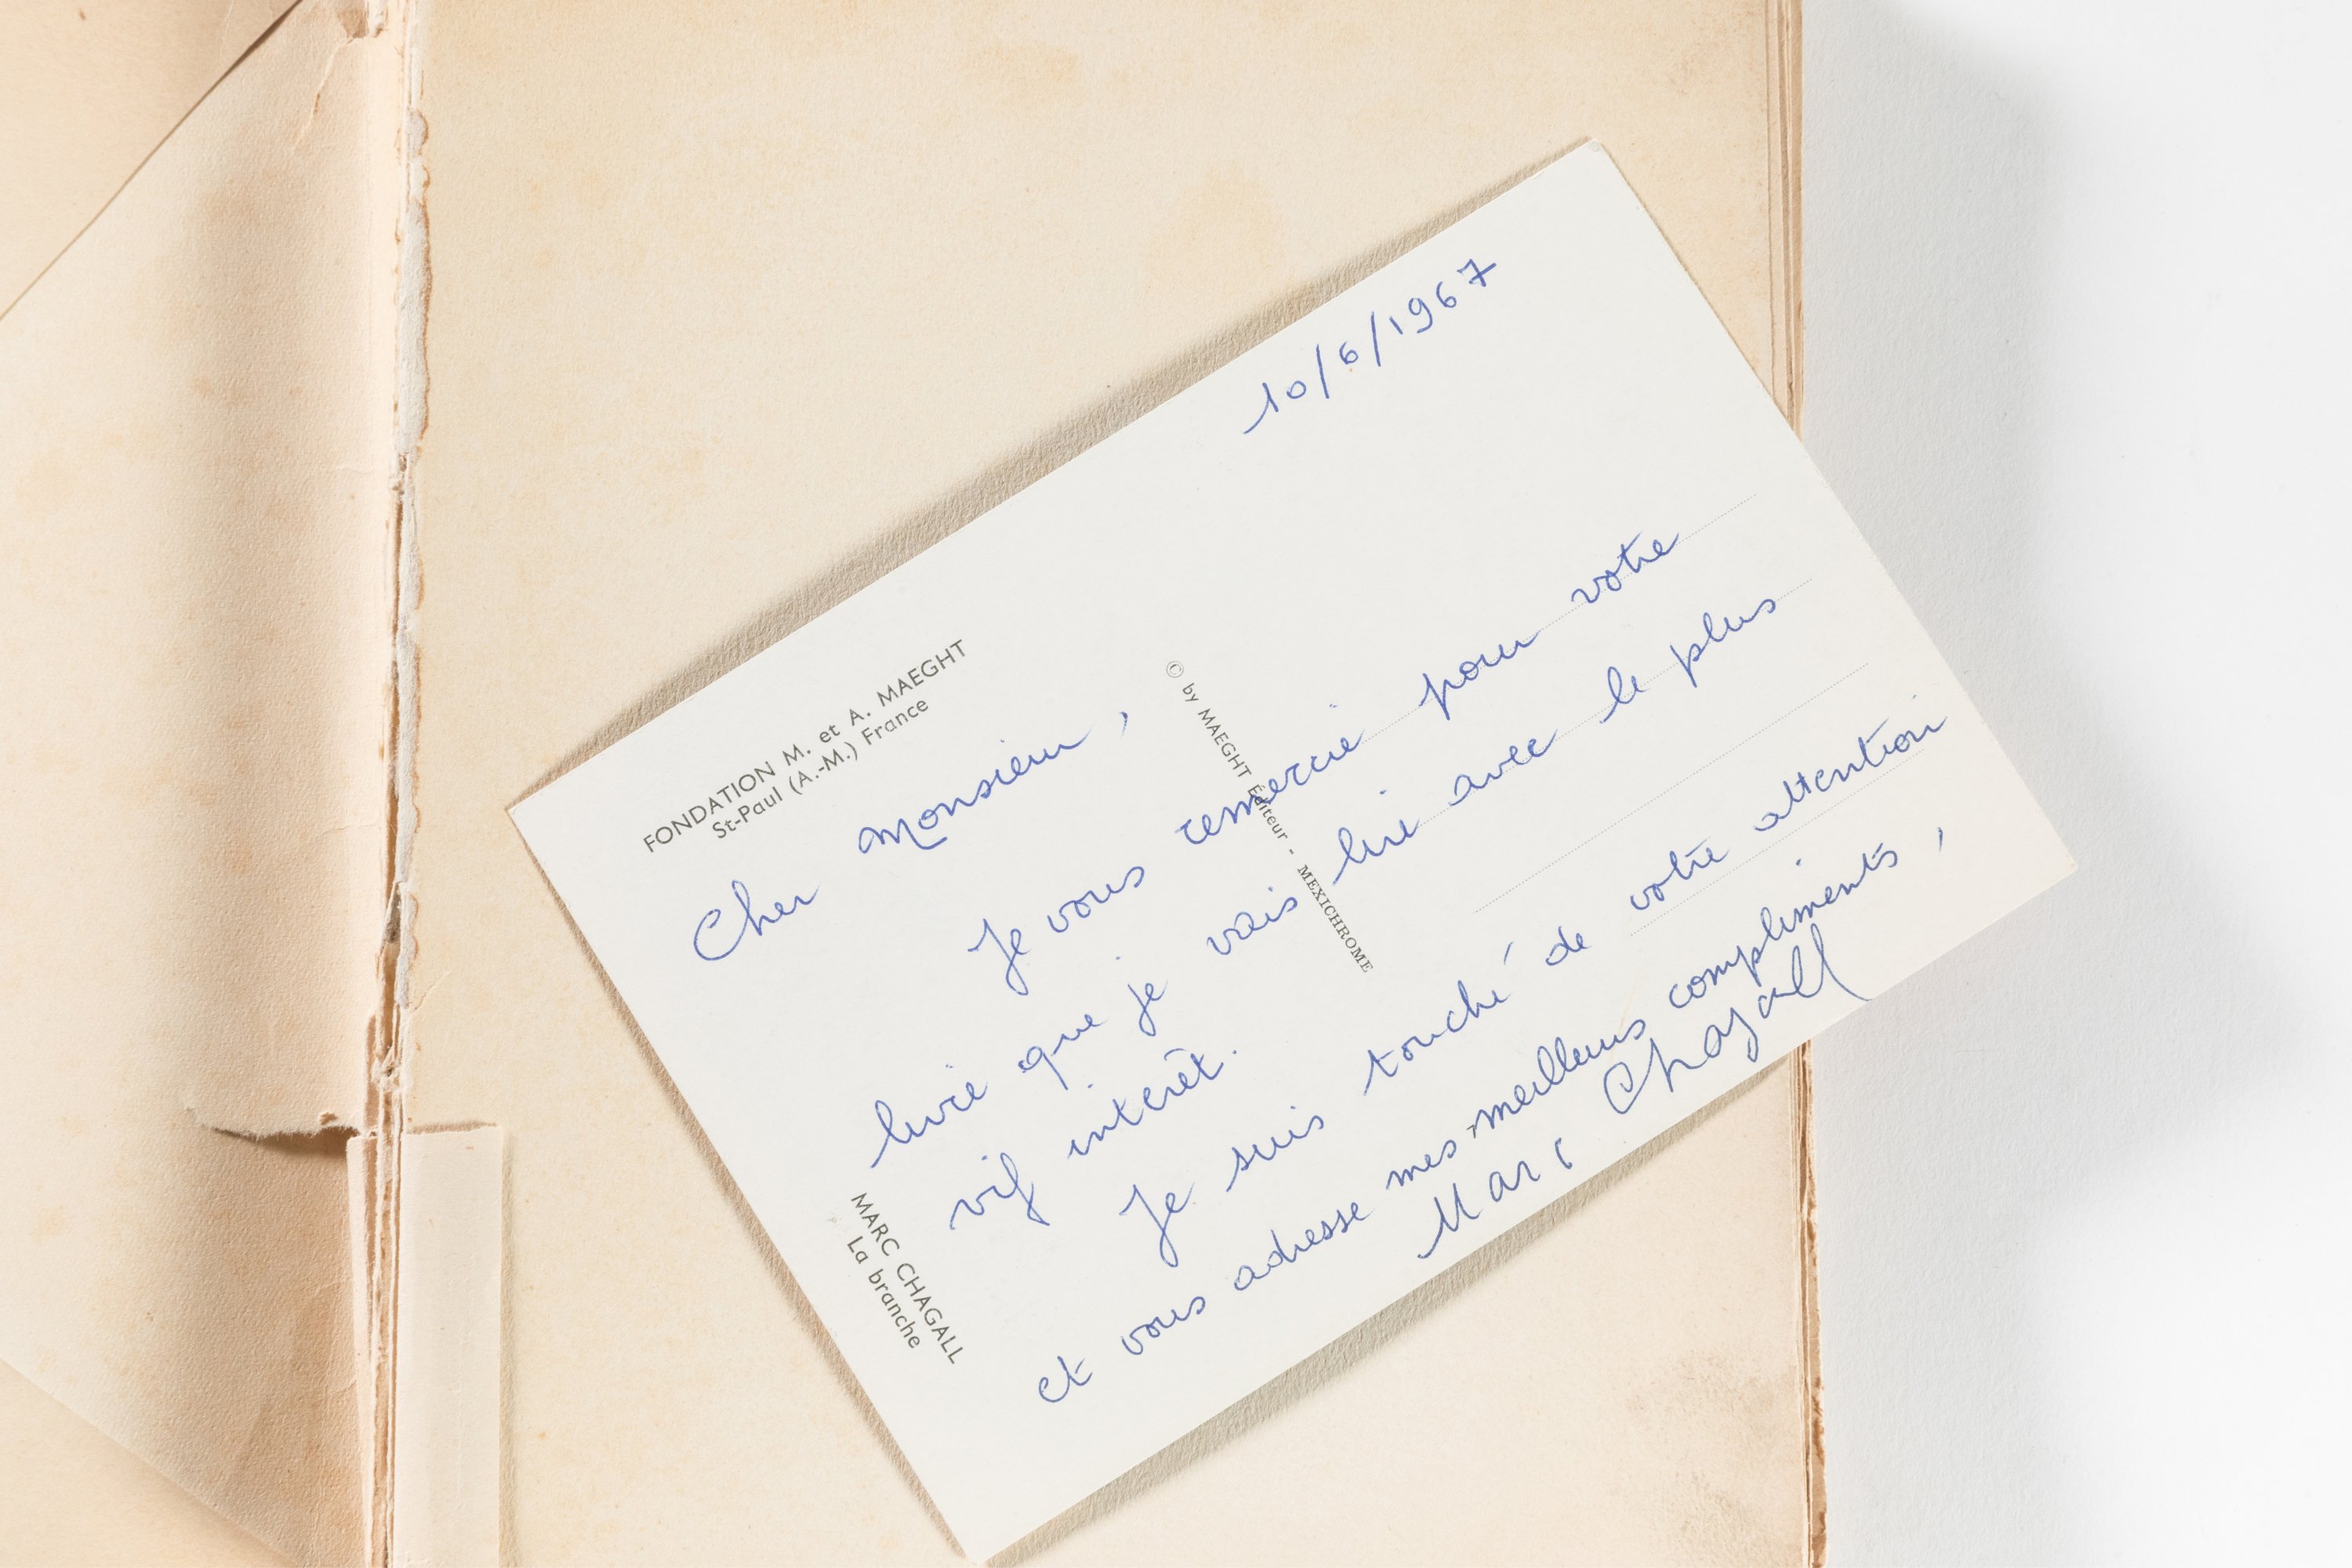 10/6/1967
FONDATION M. et A. MAEGHT
St-Paul (A.-M.) France
Cher Monsieur,
Je vous remercie pour votre
livre que je vais lire avec le plus
vif intérêt.
Je suis touché de votre attention
et vous adresse mes meilleurs compliments,
Marc Chagall
© by MAEGHT Éditeur - MEXICHROME
MARC CHAGALL
La branche